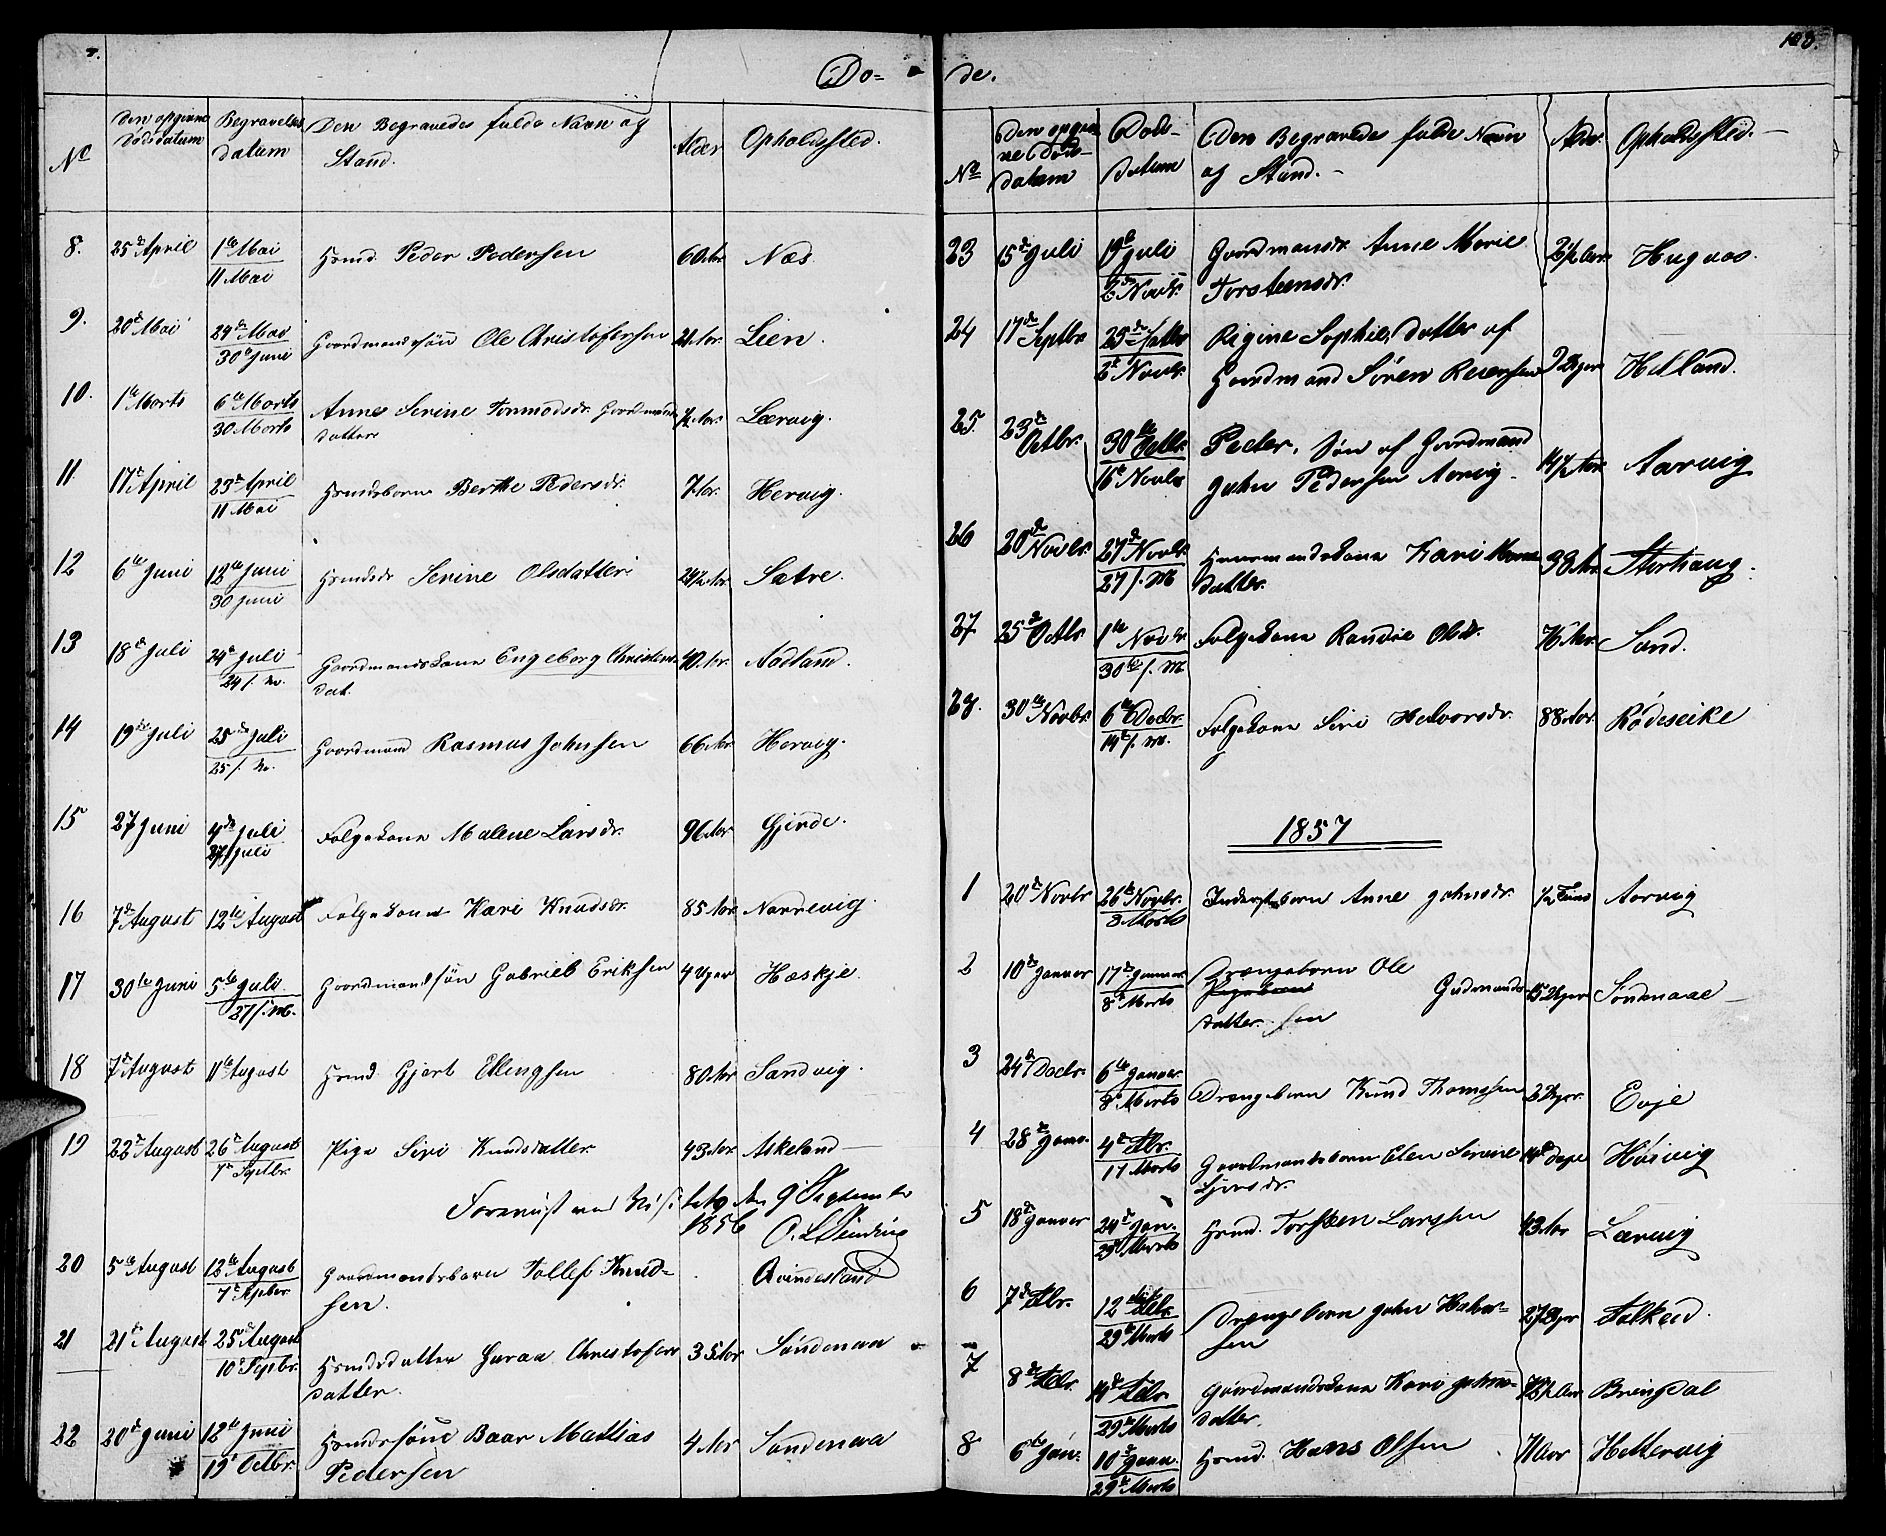 Dö=
No Den opgivne Dödsdatum Begravelses datum Den Begravedes fulde Navn og Stand. Alder Opholdssted.
8. 25de April 1te Mai / 11 Mai Hsmd. Peder Pedersen 60 Aar Næs.
9. 20de Mai 24de Mai / 30te Juni Gaardmandssön Ole Christofersen Aar. Lien.
10. 1te Marts 6te Marts / 30 Marts Anne Serine Tormodsdr. Gaardmands datter Aar. Lærvig.
11 17de April 23de April / 11 Mai Hsmdsbarn Berthe Pedersdr. 7 Aar. Hervig.
12 6te Juni 12te Juni / 30 Juni Hsmdsdr Serine Olsdatter. Aar. Satre.
13 18de Juli 24de Juli / 24 s. M. Gaardmandskone Engeborg Christens dat. 40 Aar. Aadland.
14 19de Juli 25de Juli / 25 s. M. Gaardmand Rasmus Johnsen 66 Aar Hervig.
15 27 Juni 4de Juli / 27 Juli Folgekone Malene Larsdr. 96 Aar Gjerde.
16 7de August 12te August Folgekone Kari Knudsdr. 85 Aar Narrevig.
17 30te Juni 5te Juli. / 27 s. M. Gaardmandssön Gabriel Eriksen 4 Uger Hæskje.
18 7de August 11te August Hsmd. Gjert Ellingsen 80 Aar Sandvig.
19 22de August 26de August / 7de Septbr. Pige Siri Knudsdatter. 43 Aar Askeland
Forevist ved Visitats den 9de September
1856 O. L. Sinding
20 5te August 12te August / 7de Septbr. Gaardmandsbarn Tollef Knud- Qvindesland
sen.
21 21de August 25de August / 10de Septbr. Hsmdsdatter Guroa Christofers 35 Aar Söndenaa
datter.
22 20de Juni 12te Juni / 19de Octbr. Hsmdssöne Baar Mathias 4 Aar Söndenaa
Pedersen
103.
de.
No Den opgivne Döds- datum Döds- datum Den Begravedes fulde Navn og Stand. Alder. Opholdssted.
23 15de Juli 19de Juli / 2de Novbr. Gaardmandsdr. Anne Marie 2½ Aar. Hugaas.
Torsteensdr.
24 17de Septbr. 25de Septbr / 2de Novbr. Rigine Sophie, Datter af
Gaardmand Sören Reiersen 9 Uger Helland.
25. 23de Octbr. 30te Octbr. / 6te Novbr Peder, Sön af Gaardmand
John Pedersen Aarvig. 14½ Aar Aarvig
26 20de Novbr. 27de Novbr. / 27 s. M Huusmandskone Kari
datter. 38 Aar. Storhaug.
27 25de Octbr 1te Novbr / 30te s. M. Folgekone Randie Olsdr. 76 Aar. Sand.
28. 30te Novbr. 6te Decbr. / 14de s. M. Folgekone Siri Halvorsdr. 88 Aar. Rödeseike
1857
1 20de Novbr 26de Novbr. / 8 Marts Inderstbarn Anne Johnsdr. ½ Time Aarvig
2 10de Januar 17de Januar. / 8de Marts Drengebarn Ole Gudmunds 15 Uger Söndenaae
datter sen
3 24de Decbr. 6te Januar. / 8de Marts Drengebarn Knud Thomsen 2 Uger Evje
4 28de Janr. 4de Febr. / 17 Marts Gaardmandsbarn Elen Serine 14 Dage Hösvig
5 18de Januar 24de Jan. / 29de Marts Hsmd. Torsteen Larssen 43 Aar Lærvig
6 7de Febr. 12te Febr. / 29de Marts Drengebarn John Halvor- 27 Uger Falkeid.
sen
7 8de Febr. 14de Febr. / 29de Marts Gaardmandskone Kari Johns- Aar Bringedal
datter.
8 6te Jan. 10de Janu. / 29de Marts Hsmd. Hans Olsen 71 Aar Hettervig